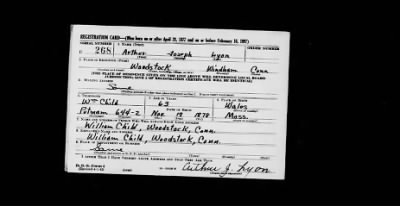 REGISTRATION CARD—(Men born on or after April 28, 1877 and on or before February 16, 1897)
SERIAL NUMBER 1. NAME (Print) ORDER NUMBER
U 268 Arthur Joseph Lyon
(First) (Middle) (Last)
2. PLACE OF RESIDENCE (Print)
Woodstock Windham Conn
[THE PLACE OF RESIDENCE GIVEN ON THE LINE ABOVE WILL DETERMINE LOCAL BOARD
JURISDICTION; LINE 2 OF REGISTRATION CERTIFICATE WILL BE IDENTICAL]
3. MAILING ADDRESS
Same
4. TELEPHONE 5. AGE IN YEARS 6. PLACE OF BIRTH
Wm Child 63 Wales
DATE OF BIRTH
Putnam 644-2 Nov 19 1878 Mass.
7. NAME AND ADDRESS OF PERSON WHO WILL ALWAYS KNOW YOUR ADDRESS
William Child, Woodstock, Conn.
8. EMPLOYER'S NAME AND ADDRESS
William Child, Woodstock, Conn.
9. PLACE OF EMPLOYMENT OR BUSINESS
Same
I AFFIRM THAT I HAVE VERIFIED ABOVE ANSWERS AND THAT THEY ARE TRUE.
D. S. S. Form 1
Arthur J. Lyon